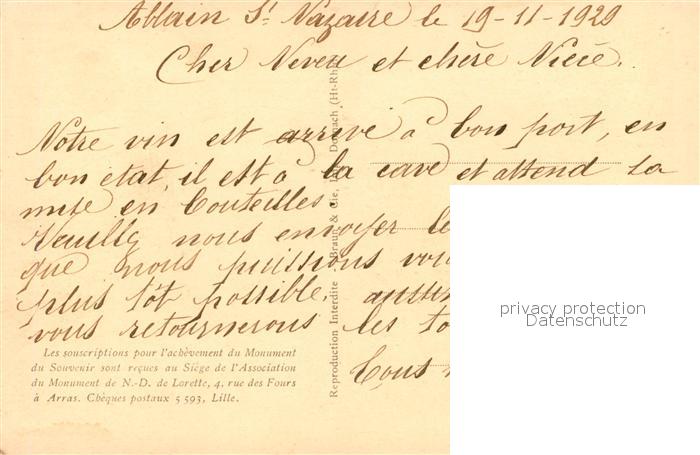 Ablain St Nazaire le 19-11-1929
Cher Neveu et chère Nièce.
Notre vin est arrivé à bon port, en
bon état, il est à la cave et attend sa
mise en bouteilles.
Veuillez nous envoyer le
que nous puissions vou
plus tôt possible, aussi
vous retournerons les to
Tous
Les souscriptions pour l'achèvement du Monument
du Souvenir sont reçues au Siège de l'Association
du Monument de N.-D. de Lorette, 4, rue des Fours
à Arras. Chèques postaux 5 593, Lille.
Reproduction Interdite Braun & Cie, Dornach (Ht-Rh
privacy protection
Datenschutz